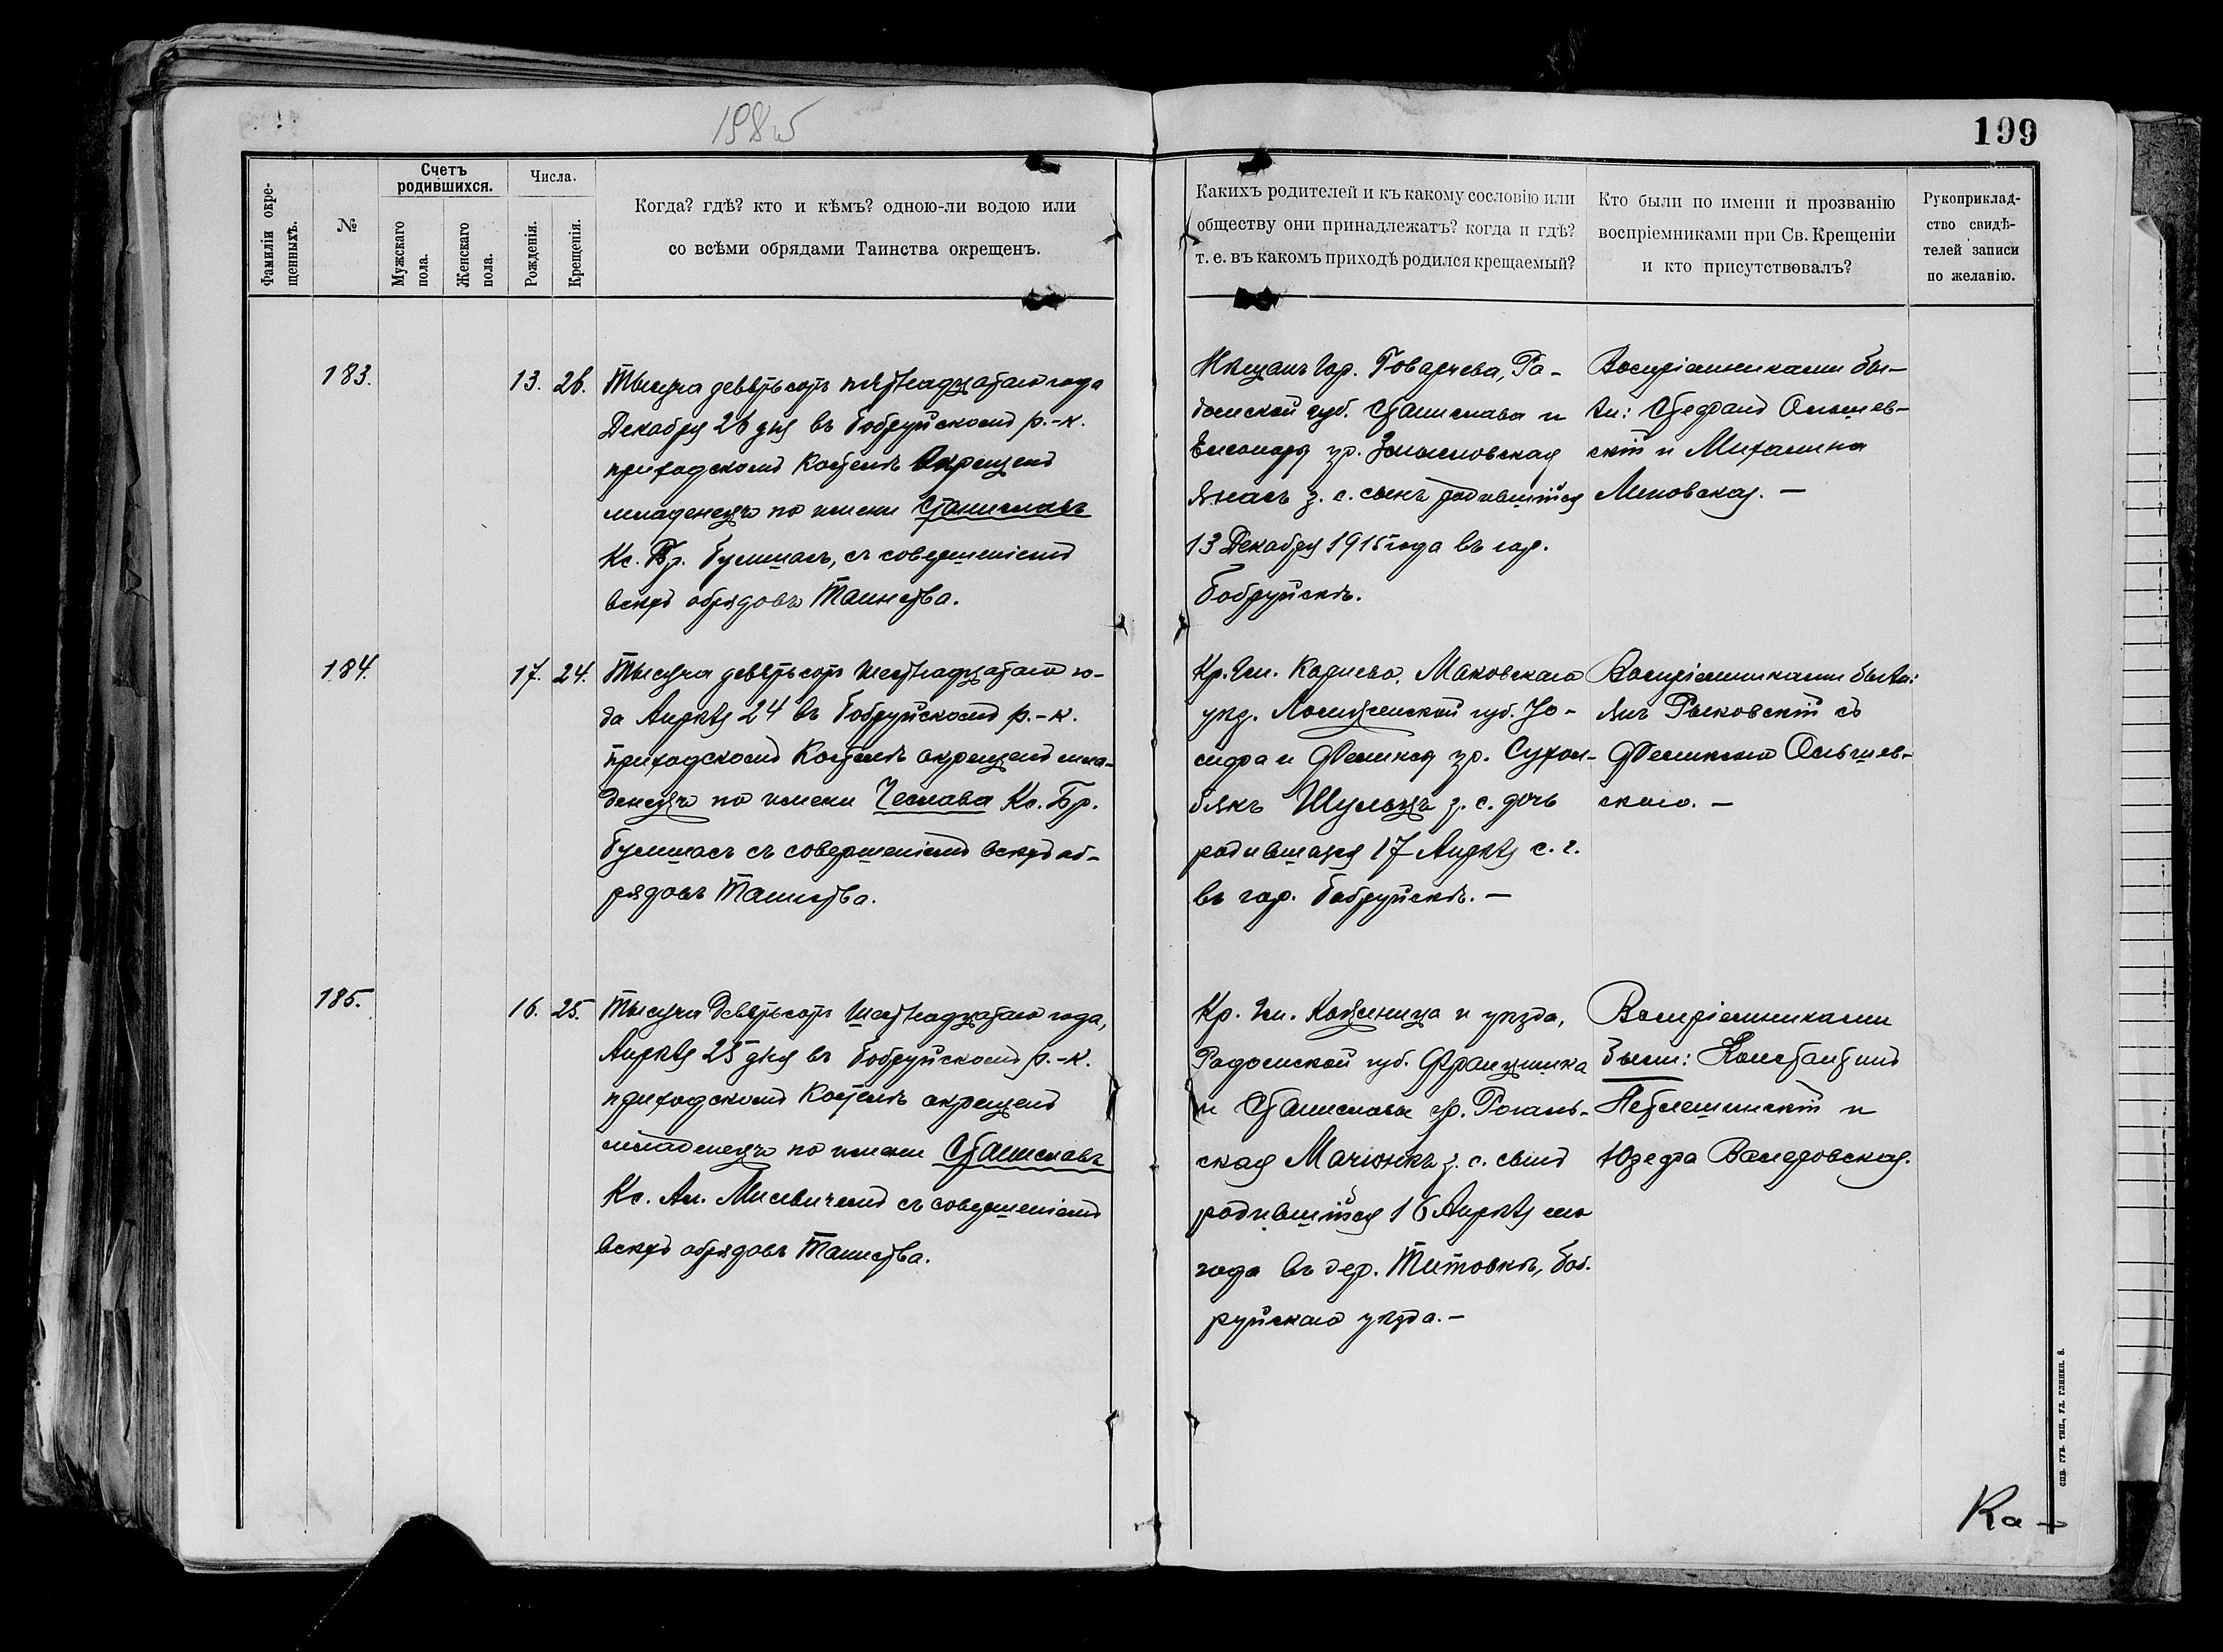 199
Фамиліи окре-
щенныхъ.
№
Счетъ
родившихся.
Мужскаго
пола.
Женскаго
пола.
Числа.
Рожденія.
Крещенія.
Когда? гдѣ? кто и кѣмъ? одною-ли водою или
со всѣми обрядами Таинства окрещенъ.
Какихъ родителей и къ какому сословію или
обществу они принадлежатъ? когда и гдѣ?
т. е. въ какомъ приходѣ родился крещаемый?
Кто были по имени и прозванію
воспріемниками при Св. Крещеніи
и кто присутствовалъ?
Рукоприклад-
ство свидѣ-
телей записи
по желанію.
183.
13. 26.
Тысяча девятьсотъ пятнадцатаго года
Декабря 26 дня въ Бобруйскомъ р.-к.
приходскомъ Костелѣ окрещенъ
младенецъ по имени Станиславъ
Кс. Бр. Бумшасъ, съ совершеніемъ
всѣхъ обрядовъ Таинства.
Мѣщанъ гор. Говарчева, Ра-
домской губ. Станислава и
ур.
з. с. сынъ родившійся
13 Декабря 1915 года въ гор.
Бобруйскѣ.
Воспріемниками бы-
ли: Стефанъ Ольшев-
скій и Михалина
Липовская. —
184.
17. 24.
Тысяча девятьсотъ шестнадцатаго го-
да Апрѣля 24 въ Бобруйскомъ р.-к.
приходскомъ Костелѣ окрещенъ мла-
денецъ по имени Чеслава Кс. Бр.
Бумшасъ съ совершеніемъ всѣхъ об-
рядовъ Таинства.
Кр. гм. Карнево, Маковскаго
уѣзд. Ломжинской губ. Іо-
сифа и Феликсы ур. Сухол-
бякъ Шульцъ з. с. дочь
родившаяся 17 Апрѣля с. г.
въ гор. Бобруйскѣ. —
Воспріемниками были:
Янъ Рыковскій съ
Феликсою Ольшев-
скою. —
185.
16. 25.
Тысяча девятьсотъ шестнадцатаго года,
Апрѣля 25 дня въ Бобруйскомъ р.-к.
приходскомъ Костелѣ окрещенъ
младенецъ по имени Станиславъ
Кс. Ал. Мисевичемъ съ совершеніемъ
всѣхъ обрядовъ Таинства.
Кр. гм. Козеница и уѣзда,
Радомской губ. Францишка
и Станиславы ур. Рогаль-
ская Мачіонжъ з. с. сынъ
родившійся 16 Апрѣля сего
года въ дер. Титовкѣ, Боб-
руйскаго уѣзда. —
Воспріемниками
были: Константинъ
Петлешинскій и
Юзефа Вондровская.
Ка-
СПБ. ГУБ. ТИП., УЛ. ГЛИНКИ. 8.